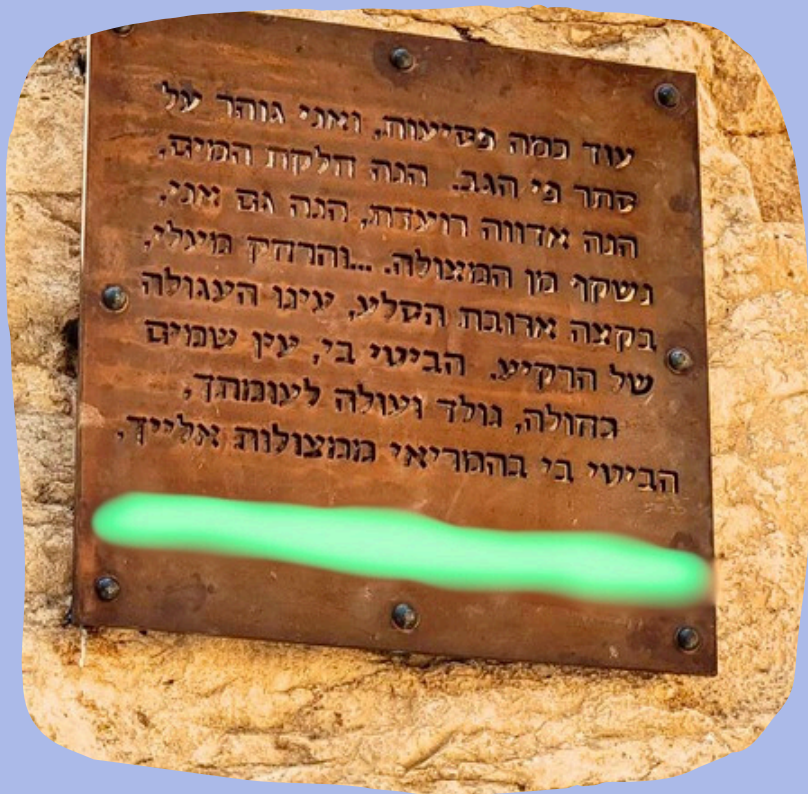 עוד כמה פסיעות, ואני גוהר על
סתר פי הגב. הנה חלקת המים,
הנה אדווה רועדת, הנה גם אני,
נשקף מן המצולה. ...והרחק מעלי,
בקצה ארובת הסלע, עינו העגולה
של הרקיע. הביטי בי, עין שמים
כחולה, גולד ועולה לעומתך,
הביטי בי בהמריאי ממצולות אלייך.